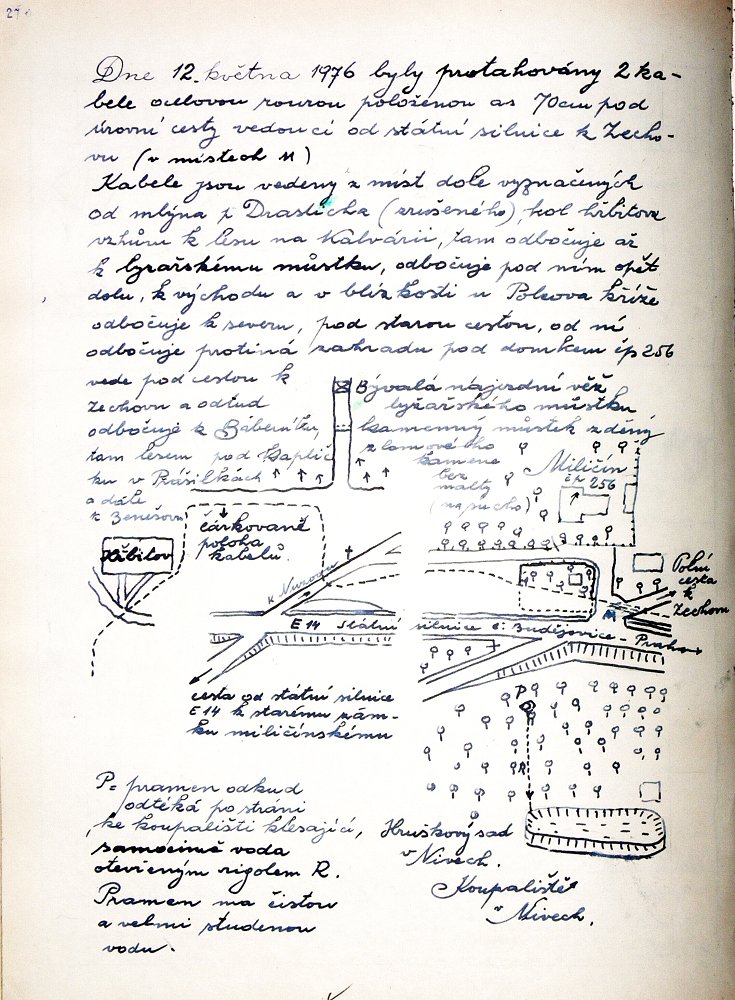 27.
Dne 12. května 1976 byly protahovány 2 ka-
bele ocelovou rourou položenou as 70cm pod
úrovní cesty vedoucí od státní silnice k Zecho-
vu (v místech M)
Kabele jsou vedeny z míst dole vyznačených
od mlýna p Drasticha (zrušeného), kol hřbitova
vzhůru k lesu na Kalvárii, tam odbočuje až
k lyžařskému můstku, odbočuje pod ním opět
dolu, k východu a v blízkosti u Polcova kříže
odbočuje k severu, pod starou cestou, od ní
odbočuje protíná zahradu pod domkem čp 256
vede pod cestou k
Zechovu a odtud
odbočuje k Babermíku,
tam lesem pod Kaplič
ku v Prásilkách
a dále
k Benešovu
Bývalá nájezdní věž
lyžařského můstku
Kamenný můstek zděný
z lomového
kamene
bez
malty
(na sucho)
Miličín
čp 256
čárkovaně
poloha
kabelů.
Hřbitov
k Nuzovu
Polní
cesta
k
Zechovu
M
E14 Státní silnice Č. Budějovice - Praha
cesta od státní silnice
E14 k starému zám-
ku miličínskému
P
R
P= pramen odkud
odtéká po stráni
ke koupališti klesající,
samočinně voda
otevřeným rigolem R.
Pramen má čistou
a velmi studenou
vodu.
Hruškový sad
v Nivech.
Koupaliště
v Nivech.